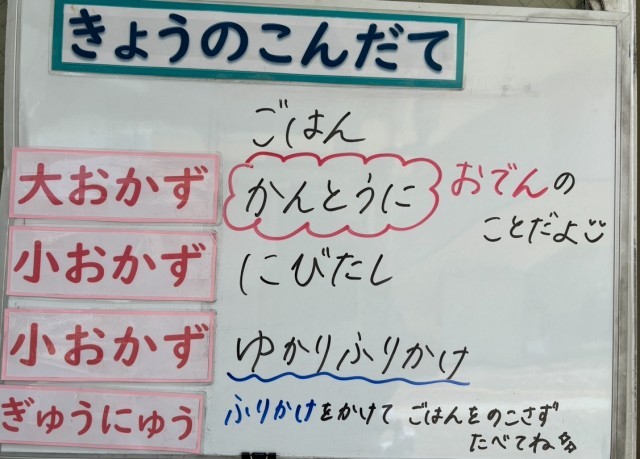 きょうのこんだて
ごはん
大おかず かんとうに おでんの
ことだよ
小おかず にびたし
小おかず ゆかりふりかけ
ぎゅうにゅう ふりかけをかけて ごはんをのこさず
たべてね